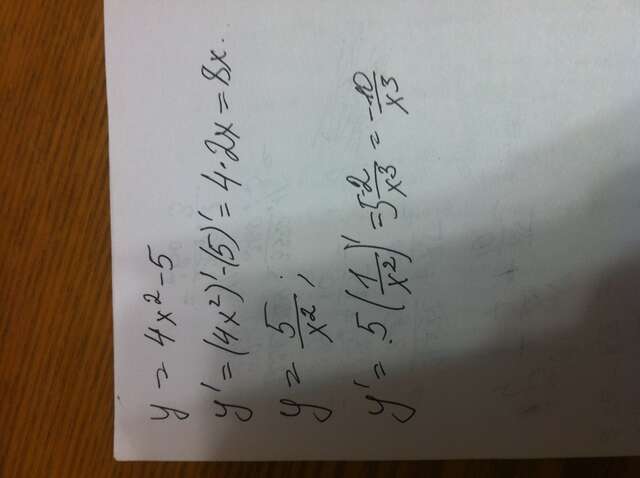 y = 4x² - 5
y' = (4x²)' - (5)' = 4·2x = 8x.
y = 5/x² ;
y' = 5(1/x²)' = 5 -2/x³ = -10/x³